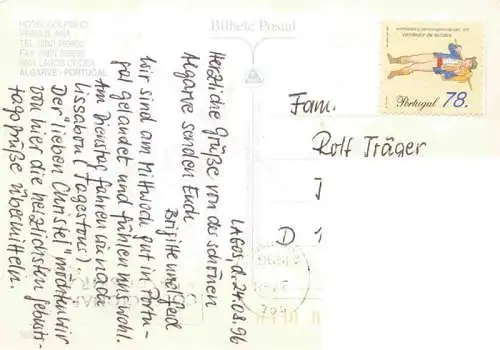 HOTEL GOLFINHO
PRAIA D. ANA
TEL.
FAX
8600 LAGOS CODEX
ALGARVE - PORTUGAL
Bilhete Postal
LAGOS, d. 24.08.96
Herzliche Grüße von der schönen
Algarve senden Euch
Brigitte und Gerd
Wir sind am Mittwoch gut in Portu-
gal gelandet und fühlen uns wohl.
Am Dienstag fahren wir nach
Lissabon (Tagestour).
Der "lieben Christel" möchten wir
von hier die herzlichsten Geburts-
tagsgrüße übermitteln.
Portugal 78.
Fam.
Rolf Träger
D 1